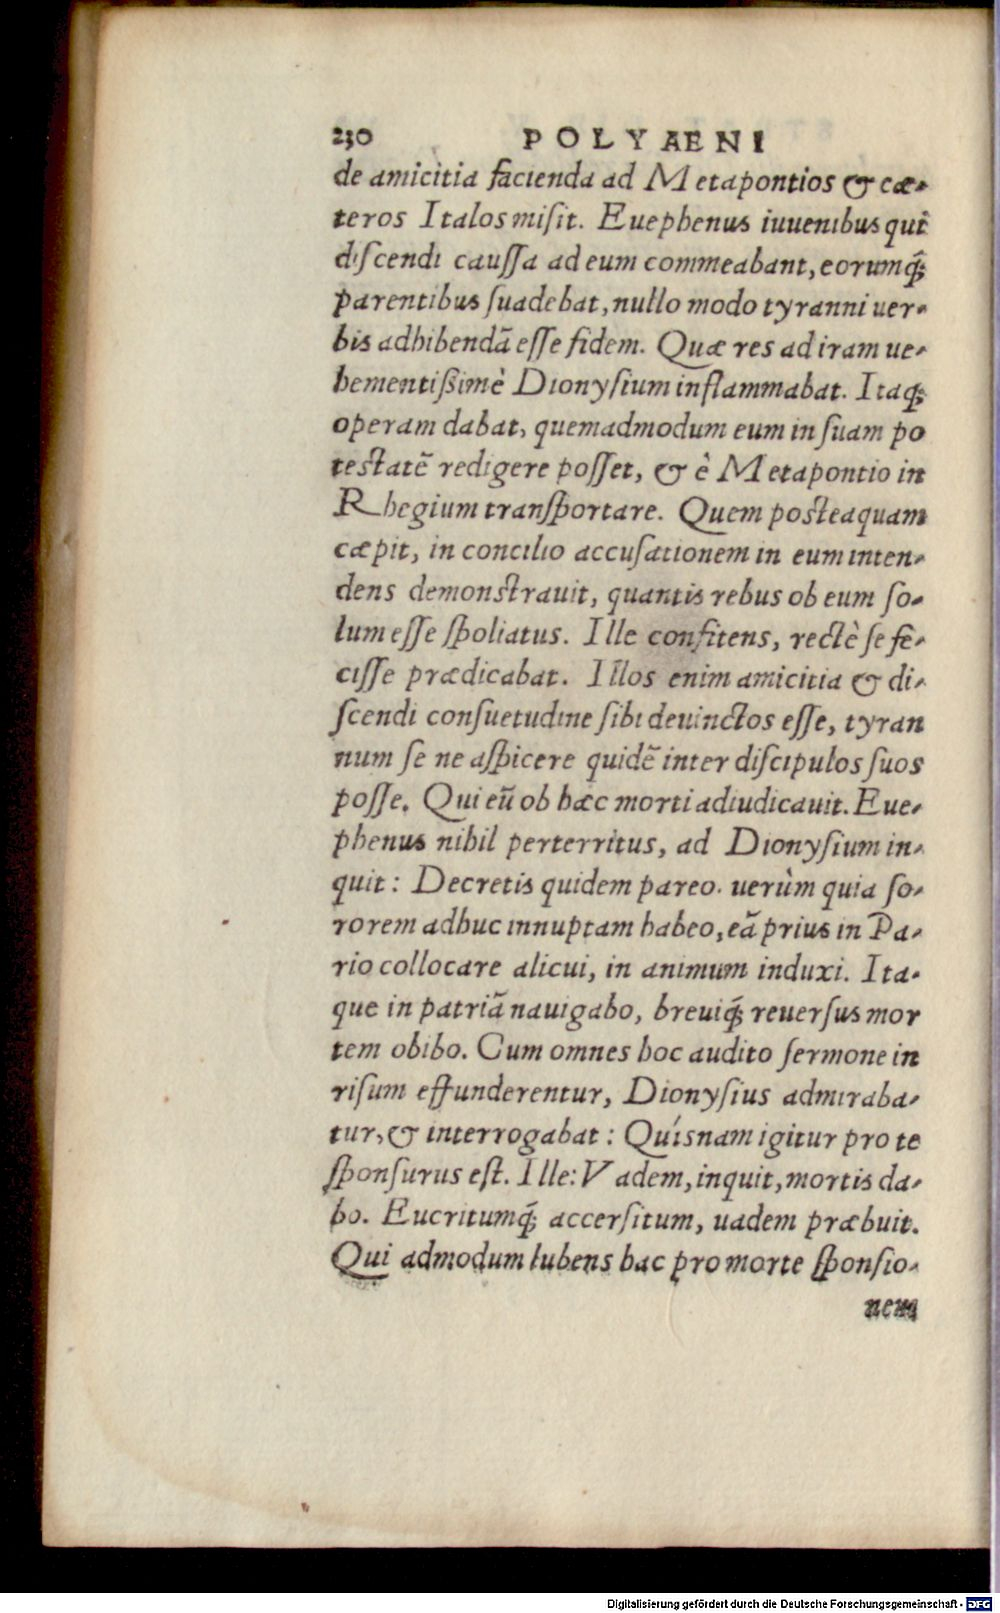 230 POLYAENI
de amicitia facienda ad Metapontios & cæ-
teros Italos misit. Euephenus iuuenibus qui
discendi caussa ad eum commeabant, eorumq́;
parentibus suadebat, nullo modo tyranni uer-
bis adhibendã esse fidem. Quæ res ad iram ue-
hementißimè Dionysium inflammabat. Itaq;
operam dabat, quemadmodum eum in suam po
testatẽ redigere posset, & è Metapontio in
Rhegium transportare. Quem posteaquam
cæpit, in concilio accusationem in eum inten-
dens demonstrauit, quantis rebus ob eum so-
lum esse spoliatus. Ille confitens, rectè se fe-
cisse prædicabat. Illos enim amicitia & di-
scendi consuetudine sibi deuinctos esse, tyran
num se ne aspicere quidẽ inter discipulos suos
posse. Qui eũ ob hæc morti adiudicauit. Eue-
phenus nihil perterritus, ad Dionysium in-
quit: Decretis quidem pareo. uerùm quia so-
rorem adhuc innuptam habeo, eã prius in Pa-
rio collocare alicui, in animum induxi. Ita-
que in patriã nauigabo, breuiq́; reuersus mor
tem obibo. Cum omnes hoc audito sermone in
risum effunderentur, Dionysius admiraba-
tur, & interrogabat: Quísnam igitur pro te
sponsurus est. Ille: Vadem, inquit, mortis da-
bo. Eucritumq́; accersitum, uadem præbuit.
Qui admodum lubens hac pro morte sponsio-
nem
Digitalisierung gefördert durch die Deutsche Forschungsgemeinschaft - DFG